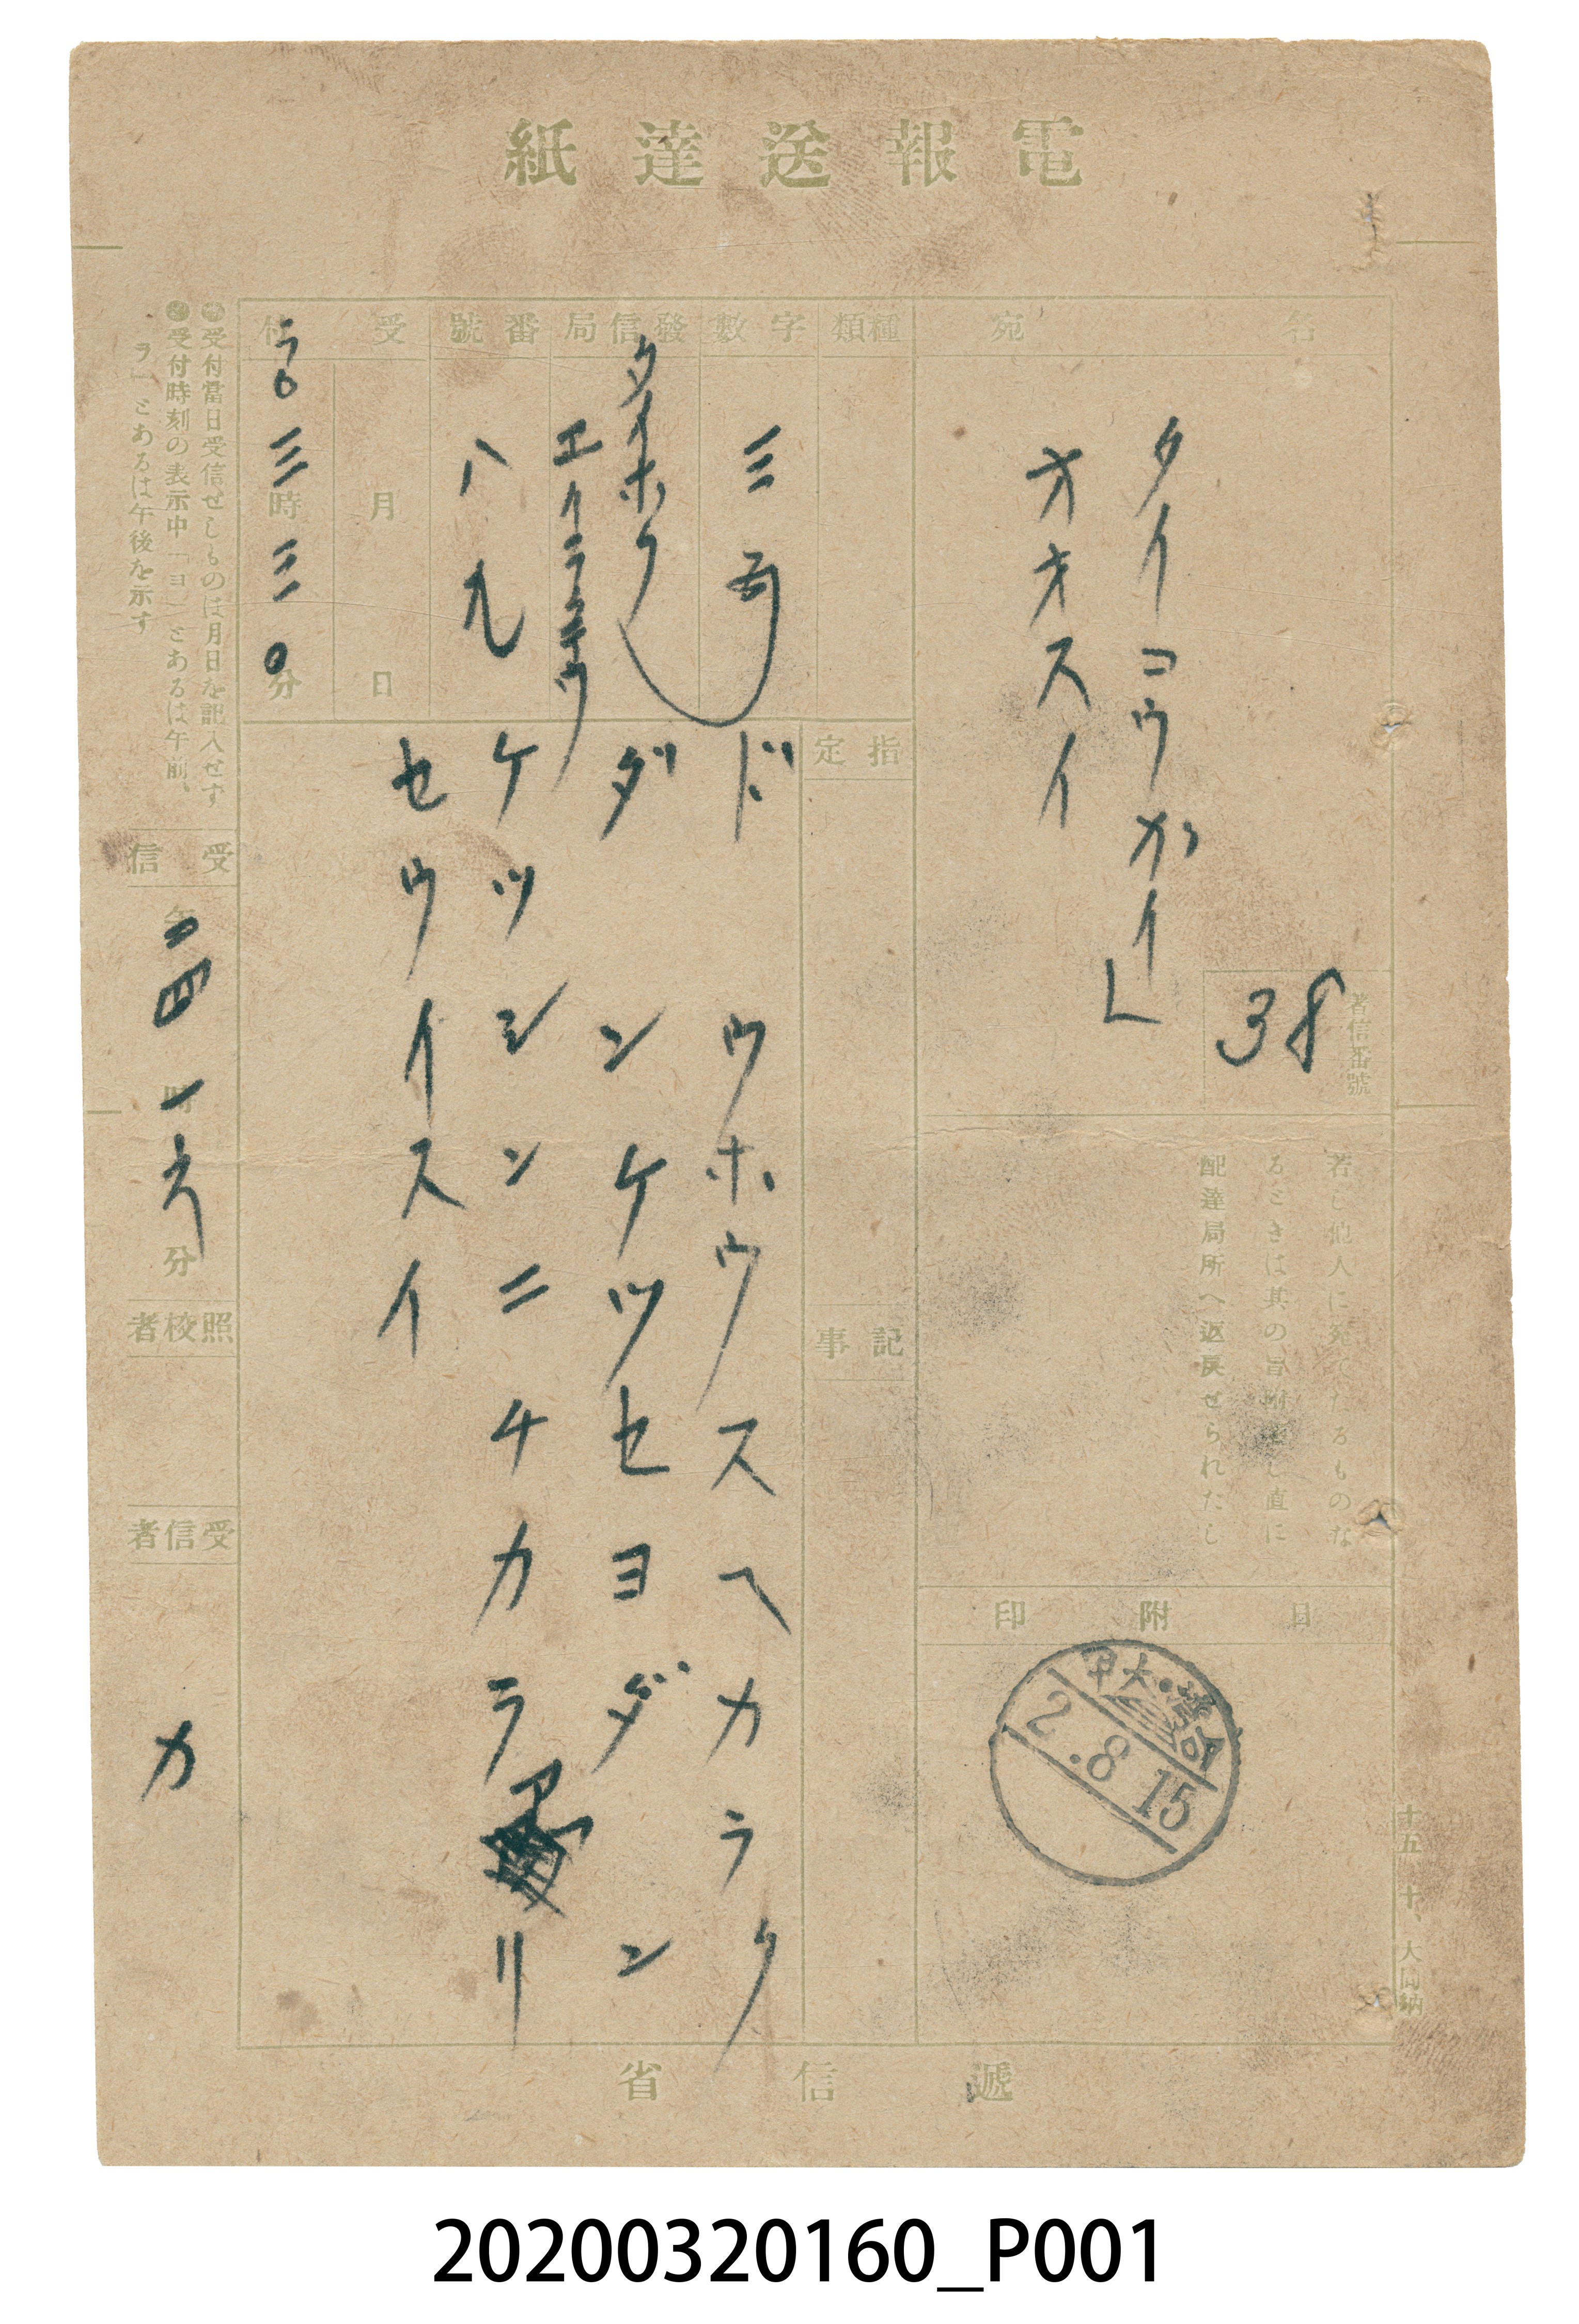 電報送達紙
宛名
タイコウカイ
オオスイ
著信番號
38
若し他人に宛てたるものな
るときは其の旨附箋し直に
配達局所へ返戻せられたし
日附印
臺灣・大甲
2.8.15
種類
字數
三五
發信局
タイホク
エイラクテウ
番號
八九
受付
月日
時分
ラ〇三三〇
指定
記事
ドウホウスヘカラク
ダンケツセヨダン
ケツシンニチカラアリ
セウイスイ
●受付當日受信せしものは月日を記入せず
●受付時刻の表示中「ヨ」とあるは午前、
「ラ」とあるは午後を示す
受信
時分
四一六
照校者
受信者
カ
十五、十、大同納
遞信省
20200320160_P001